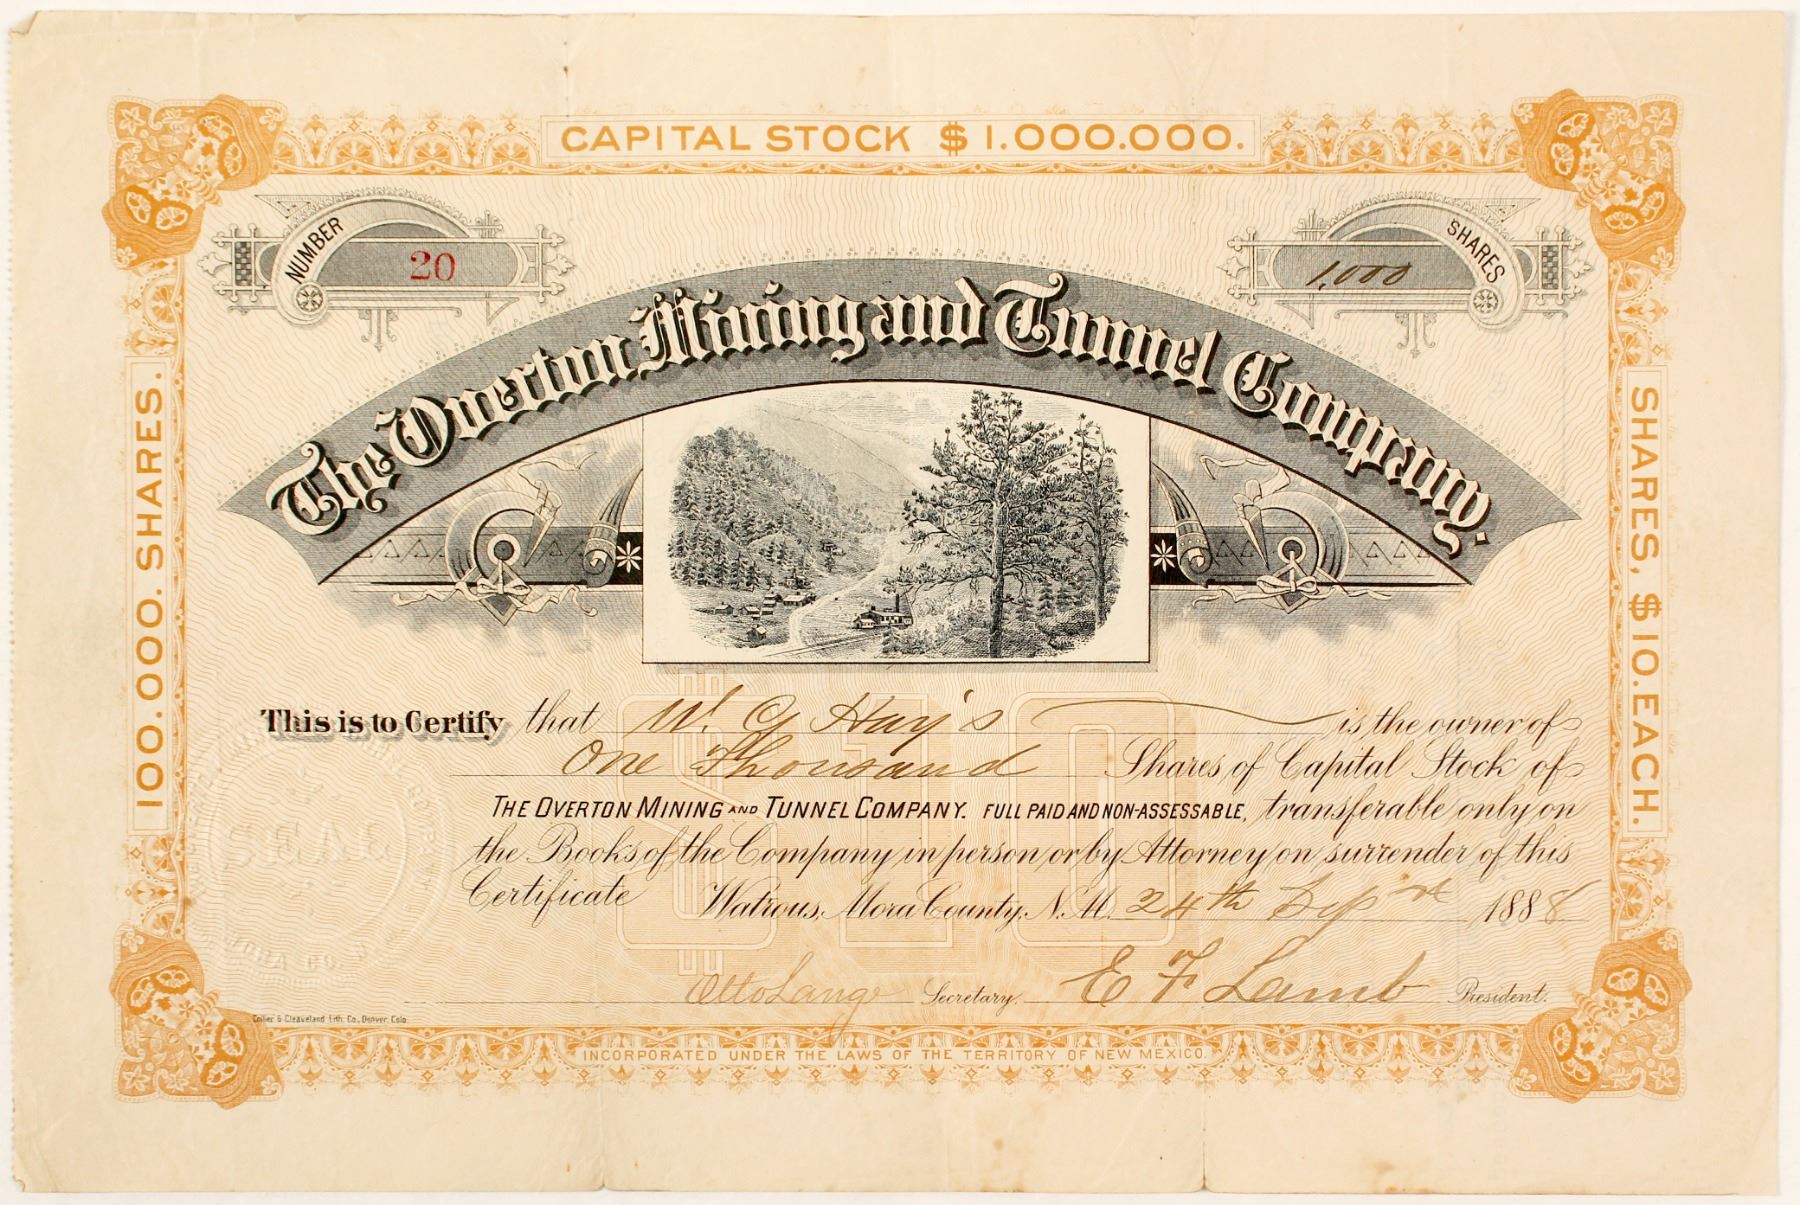 CAPITAL STOCK $1.000.000.
NUMBER
20
SHARES
1,000
The Overton Mining and Tunnel Company.
100.000. SHARES.
SHARES, $10. EACH.
This is to Certify that W. G Hay's is the owner of
One Thousand Shares of Capital Stock of
THE OVERTON MINING AND TUNNEL COMPANY. FULL PAID AND NON-ASSESSABLE, transferable only on
the Books of the Company in person or by Attorney on surrender of this
Certificate Watrous, Mora County, N.M. 24th 1888
$10
SEAL
MORA CO.
Otto Lange Secretary. E F Lamb President.
Collier & Cleaveland Lith. Co., Denver, Colo.
INCORPORATED UNDER THE LAWS OF THE TERRITORY OF NEW MEXICO.